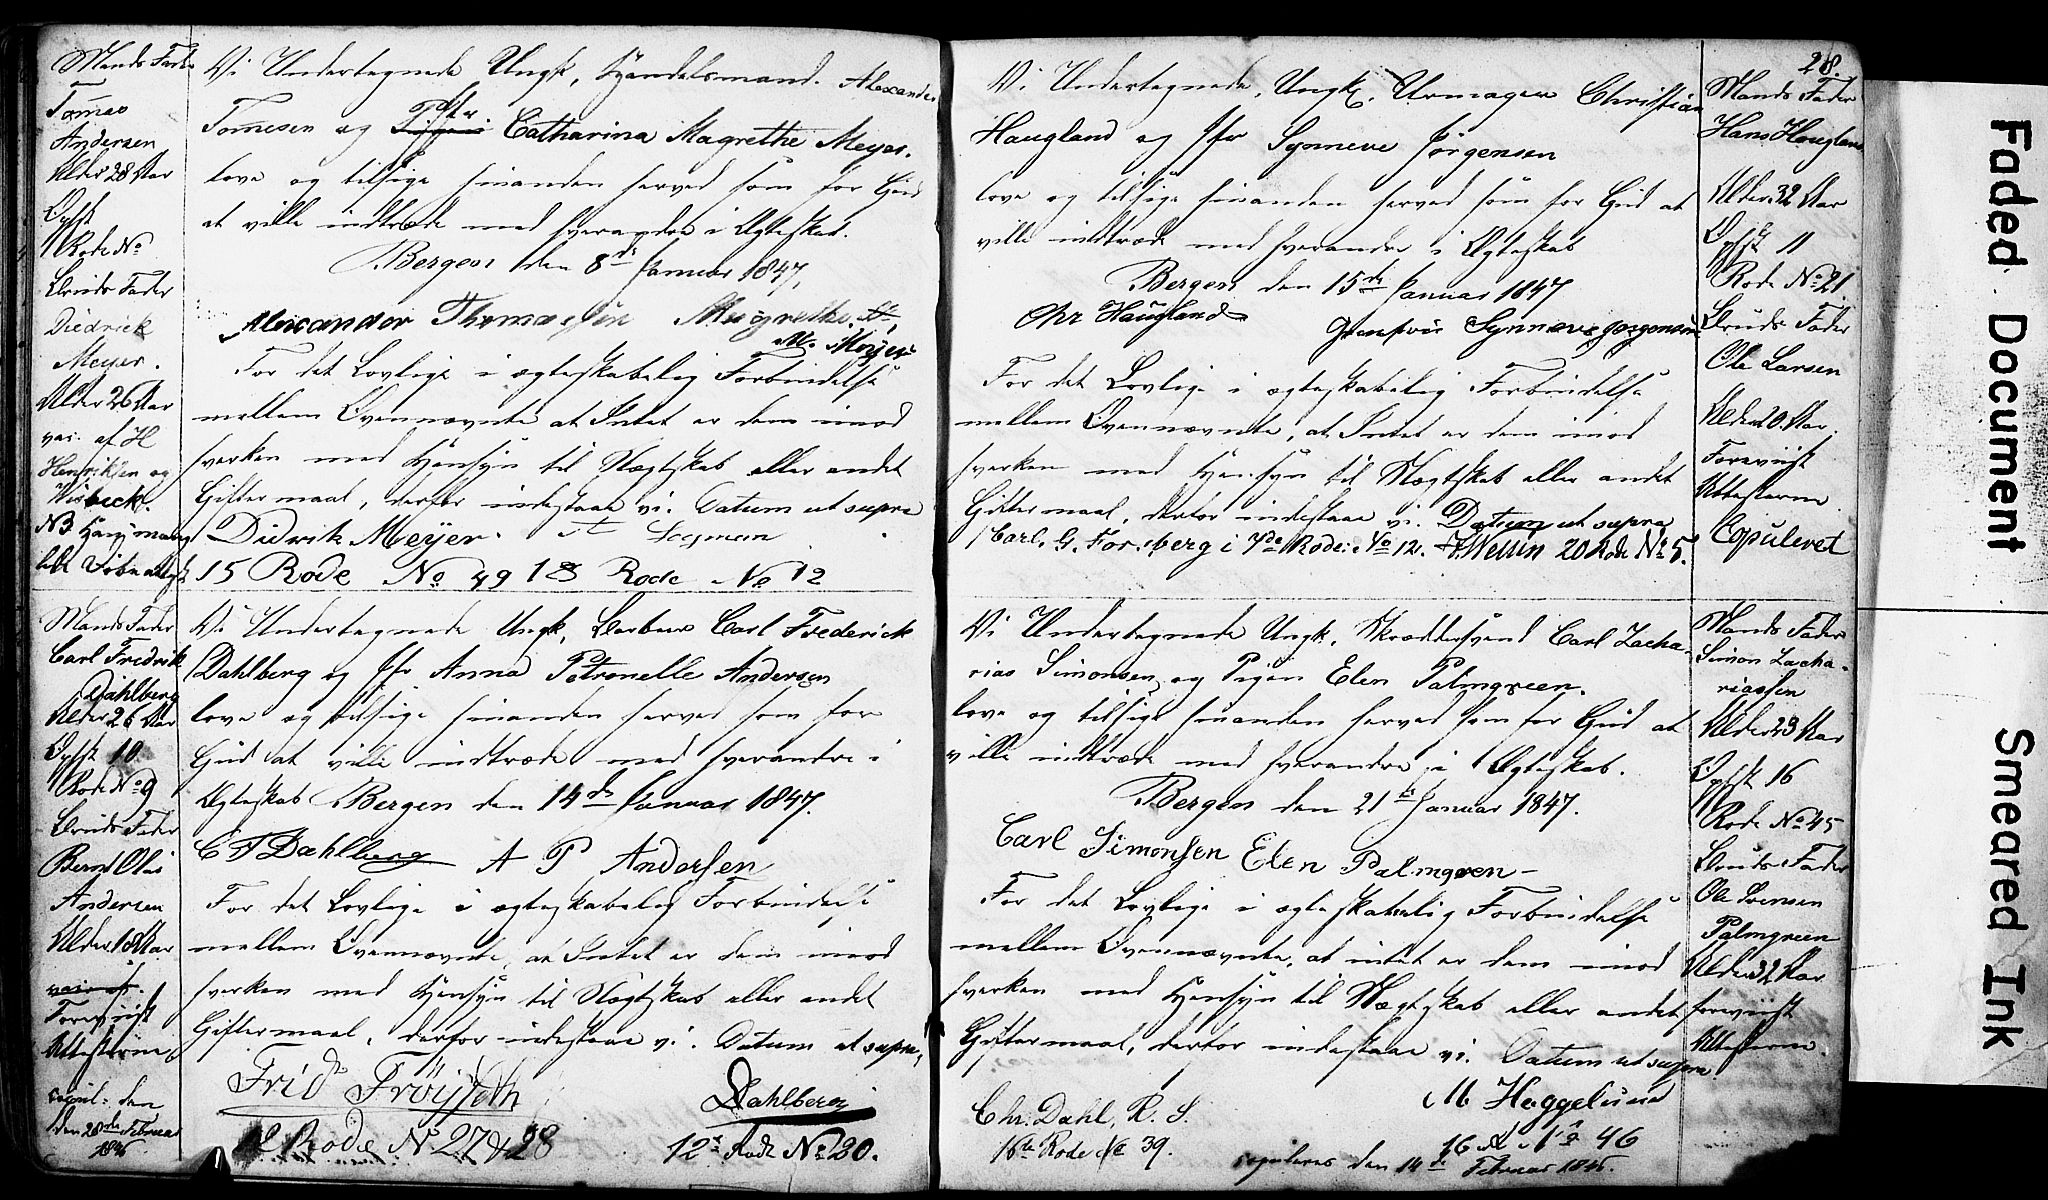 Mands Fader
Tomas
Andersen
Alder 28 Aar
Opsk
Rode No
Bruds Fader
Diedrick
Meyer.
Alder 26 Aar
vac. af H
Henriksen og
Wisbeck.
NB
Vi Undertegnede Ungk, Handelsmand. Alexander
Tomesen og Pige Catharina Magrethe Meyer.
love og tilsige hinanden herved som for Gud
at ville indtræde med hverandre i Ægteskab.
Bergen den 8de Januar 1847,
Alexander Thomassen Magrethe
M. Meyer
For det Lovlige i ægteskabelig Forbindelse
mellem Ovennævnte at Intet er dem imod
hverken med Hensyn til Slægtskab eller andet
Giftermaal, derfor indestaae vi. Datum ut supra
Didrik Meyer.
15 Rode No 49 18 Rode No 12
Mands Fader
Carl Fredrik
Dahlberg
Alder 26 Aar
Opsk 10
Rode No 9
Bruds Fader
Bernt Olai
Andersen
Alder 18 Aar
vac. af.
Foreviist
Attesterne
copul. den
den 28de Februar
Vi Undertegnede Ungk, Barber Carl Frederick
Dahlberg og Jfr Anna Petronelle Andersen
love og tilsige hinanden herved som for
Gud at ville indtræde med hverandre i
Ægteskab Bergen den 14de Januar 1847.
C F Dahlberg A P Andersen
For det Lovlige i ægteskabelig Forbindelse
mellem Ovennævnte, at Intet er dem imod
hverken med Hensyn til Slægtskab eller andet
Giftermaal, derfor indestaae vi. Datum ut supra,
Frid Fröiseth Dahlberg
Rode No 27 & 28 12te Rode No 20.
28.
Vi Undertegnede, Ungk. Urmager Christian
Haugland og Jfr Synneve Jørgensen
love og tilsige hinanden herved som for Gud at
ville indtræde med hverandre i Ægteskab
Bergen den 15de Januar 1847
Chr Haugland Synneve Jørgensen
For det Lovlige i ægteskabelig Forbindelse
mellem Ovennævnte, at Intet er dem imod
hverken med Hensyn til Slægtskab eller andet
Giftermaal, derfor indestaae vi. Datum ut supra
Carl. G. Forsberg i 7de Rode No 12. 20 Rode No 5.
Mands Fader
Hans Haugland
Alder 32 Aar
Opsk 11
Rode No 21
Bruds Fader
Ole Larsen
Alder 20 Aar.
Foreviist
Attesterne
Copuleret
Vi Undertegnede Ungk. Skræddersvend Carl Zacha-
rias Simonsen og Pigen Elen Palmgreen.
love og tilsige hinanden herved som for Gud at
ville indtræde med hverandre i Ægteskab.
Bergen den 21de Januar 1847.
Carl Simonsen Elen Palmgren
For det Lovlige i ægteskabelig Forbindelse
mellem Ovennævnte, at intet er dem imod
hverken med Hensyn til Slægtskab eller andet
Giftermaal, derfor indestaae vi. Datum ut supra
M Heggelund
Chr. Dahl, R. S.
16de Rode No 39. 16 R No 46
copuleret den 14de Februar
Mands Fader
Simon Zacha-
riassen
Alder 23 Aar
Opsk 16
Rode No 45
Bruds Fader
Ole Svensen
Palmgreen
Alder 32 Aar
foreviist
Attesterne.
Faded Document
Smeared Ink